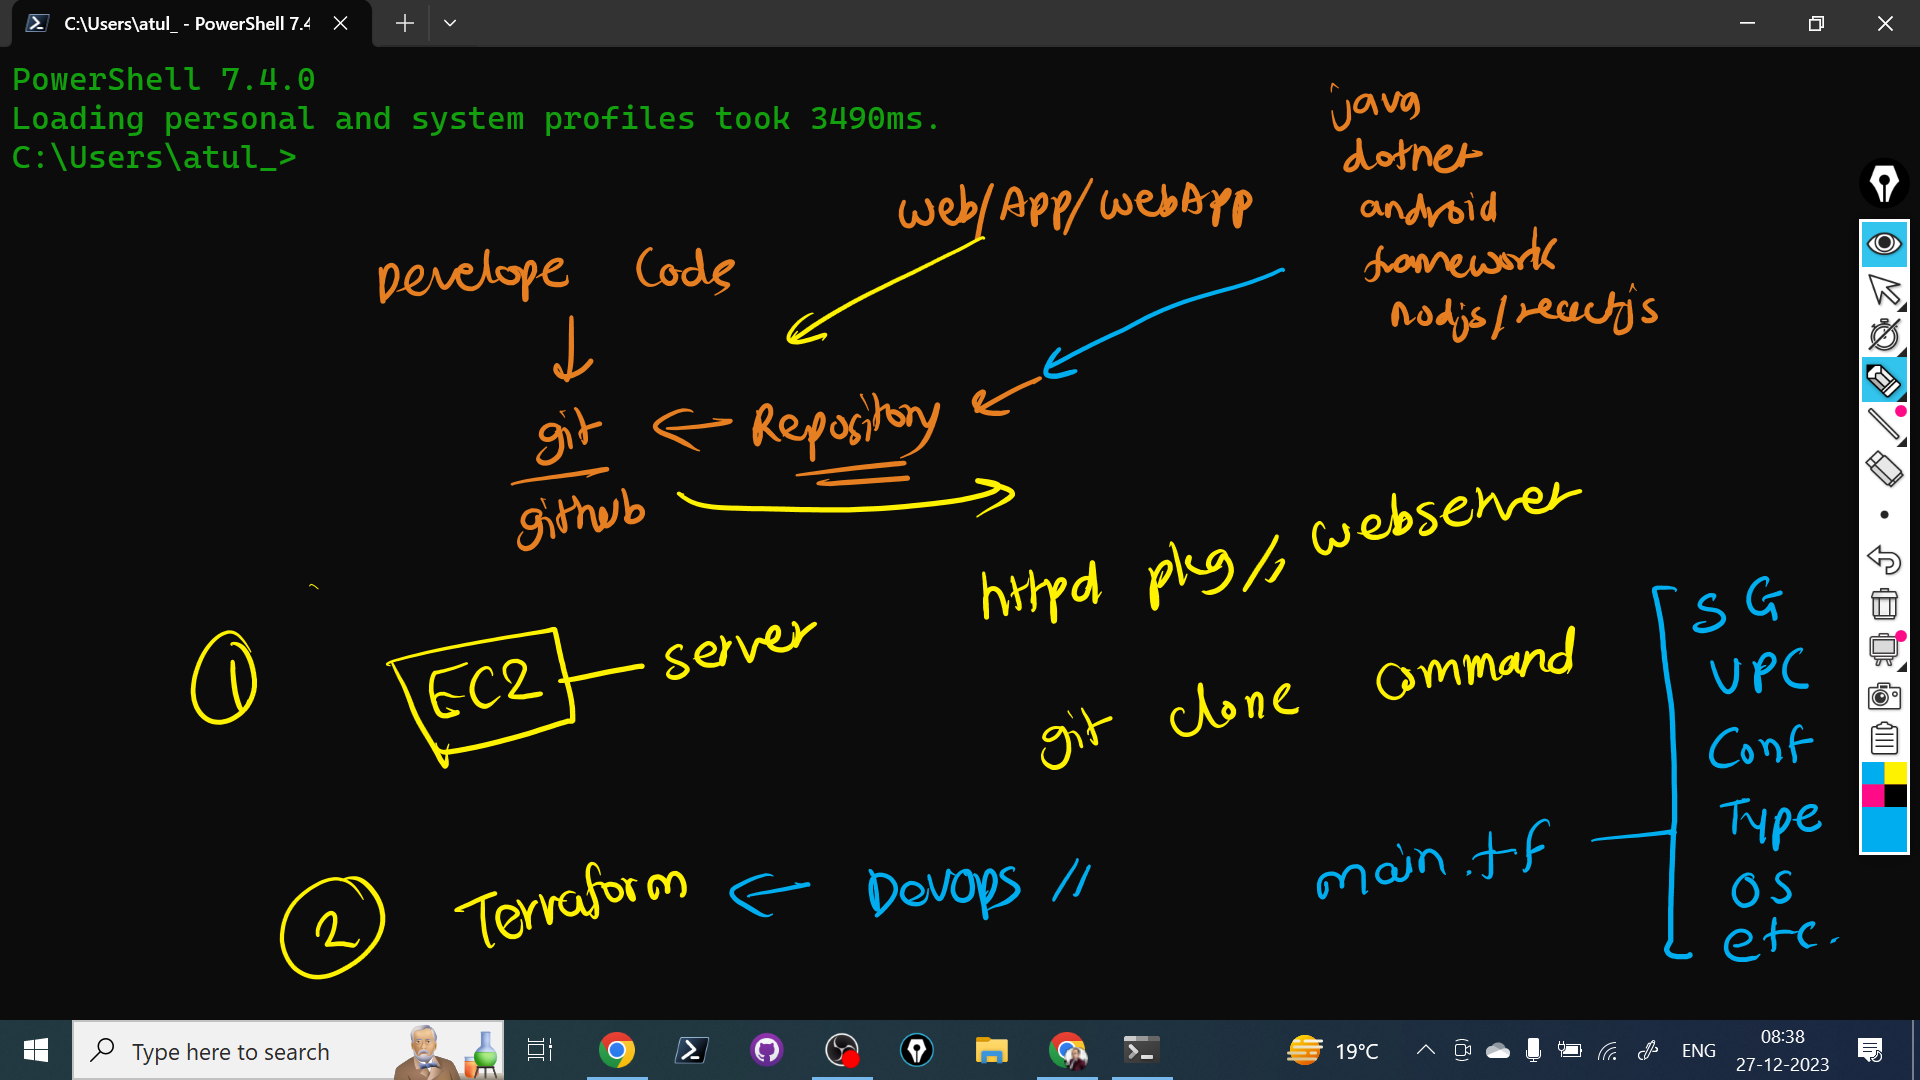 C:\Users\atul_ - PowerShell 7.4
PowerShell 7.4.0
Loading personal and system profiles took 3490ms.
C:\Users\atul_>
java
dotnet
android
framework
nodjs/reactjs
web/App/webApp
Develope Code
git
github
Repository
httpd pkg // webserver
1
EC2
server
git clone command
2
Terraform
Devops //
main.tf
SG
VPC
Conf
Type
OS
etc.
Type here to search
19°C
ENG
08:38
27-12-2023